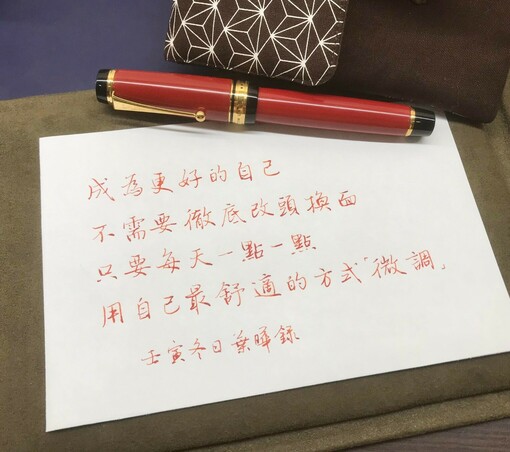 成為更好的自己
不需要徹底改頭換面
只要每天一點一點
用自己最舒適的方式「微調」
壬寅冬日葉曄錄